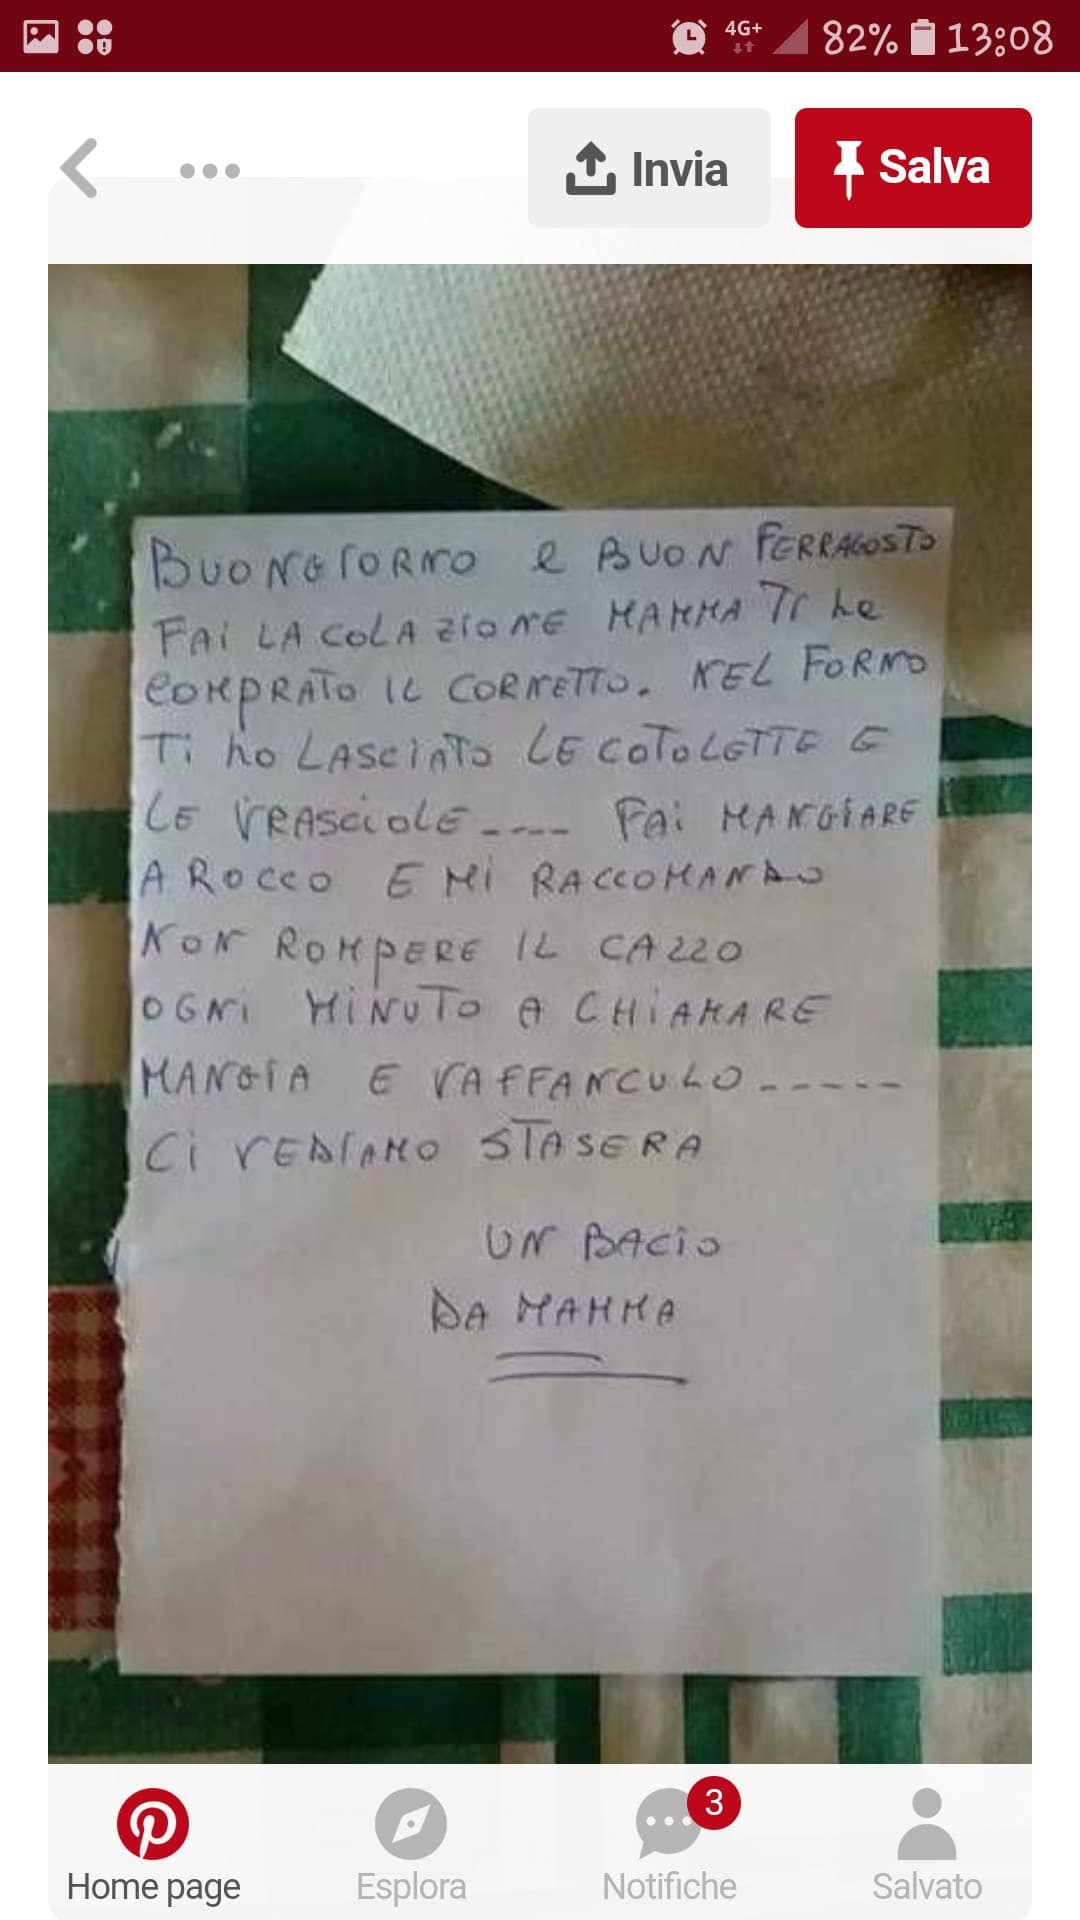 4G+ 82% 13:08
Invia Salva
BUONGIORNO e BUON FERRAGOSTO
FAi LA COLAZIONE MAMMA TI he
COMPRATO IL CORNETTO. NEL FORNO
Ti ho LASCIATO LE COTOLETTE E
LE VRASCIOLE---- FAi MANGIARE
A ROCCO E Mi RACCOMANDO
NON ROMPERE IL CAZZO
OGNi MiNUTO A CHiAMARE
MANGIA E VAFFANCULO-----
Ci VEDIAMO STASERA
UN BACIO
DA MAMMA
3
Home page Esplora Notifiche Salvato